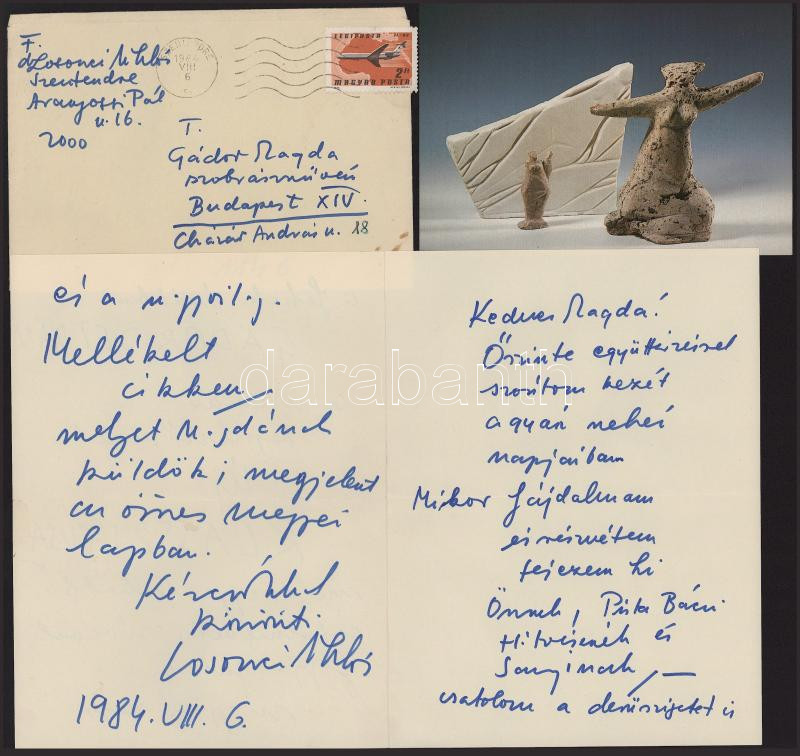 F.
dr Losonci Miklós
Szentendre
Aranyossi Pál
u. 16.
2000
SZENTENDRE
1984
VIII
6
LÉGIPOSTA
2 Ft
MAGYAR POSTA
T.
Gádor Magda
szobrászművész
Budapest XIV.
Cházár András u. 18
Kedves Magda!
Őszinte együttérzéssel
szorítom kezét
a gyász nehéz
napjaiban
Mikor fájdalmam
és részvétem
fejezem ki
Önnek, Pista Bácsi
Hitvesének és
csatolom a derűszigetet is
és a
Mellékelt
cikkem,
melyet Magdának
küldök, megjelent
az összes megyei
lapban.
Kézcsókkal
köszönti
Losonci Miklós
1984. VIII. 6.
darabanth